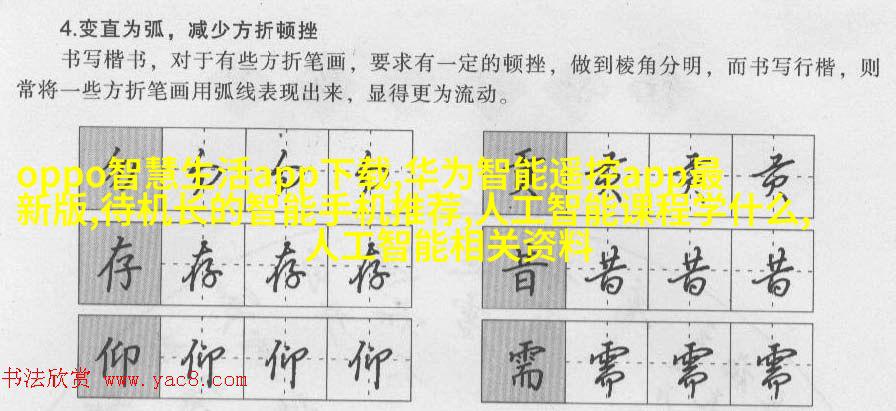 4.变直为弧，减少方折顿挫
书写楷书，对于有些方折笔画，要求有一定的顿挫，做到棱角分明，而书写行楷，则
常将一些方折笔画用弧线表现出来，显得更为流动。
oppo智慧生活app下载,华为智能遥控app最
新版,待机长的智能手机推荐,人工智能课程学什么,
人工智能相关资料
存 存 存 存
昔 昔 昔 昔
仰 仰 仰 仰
需 需 需 需
书法欣赏 www.yac8.com